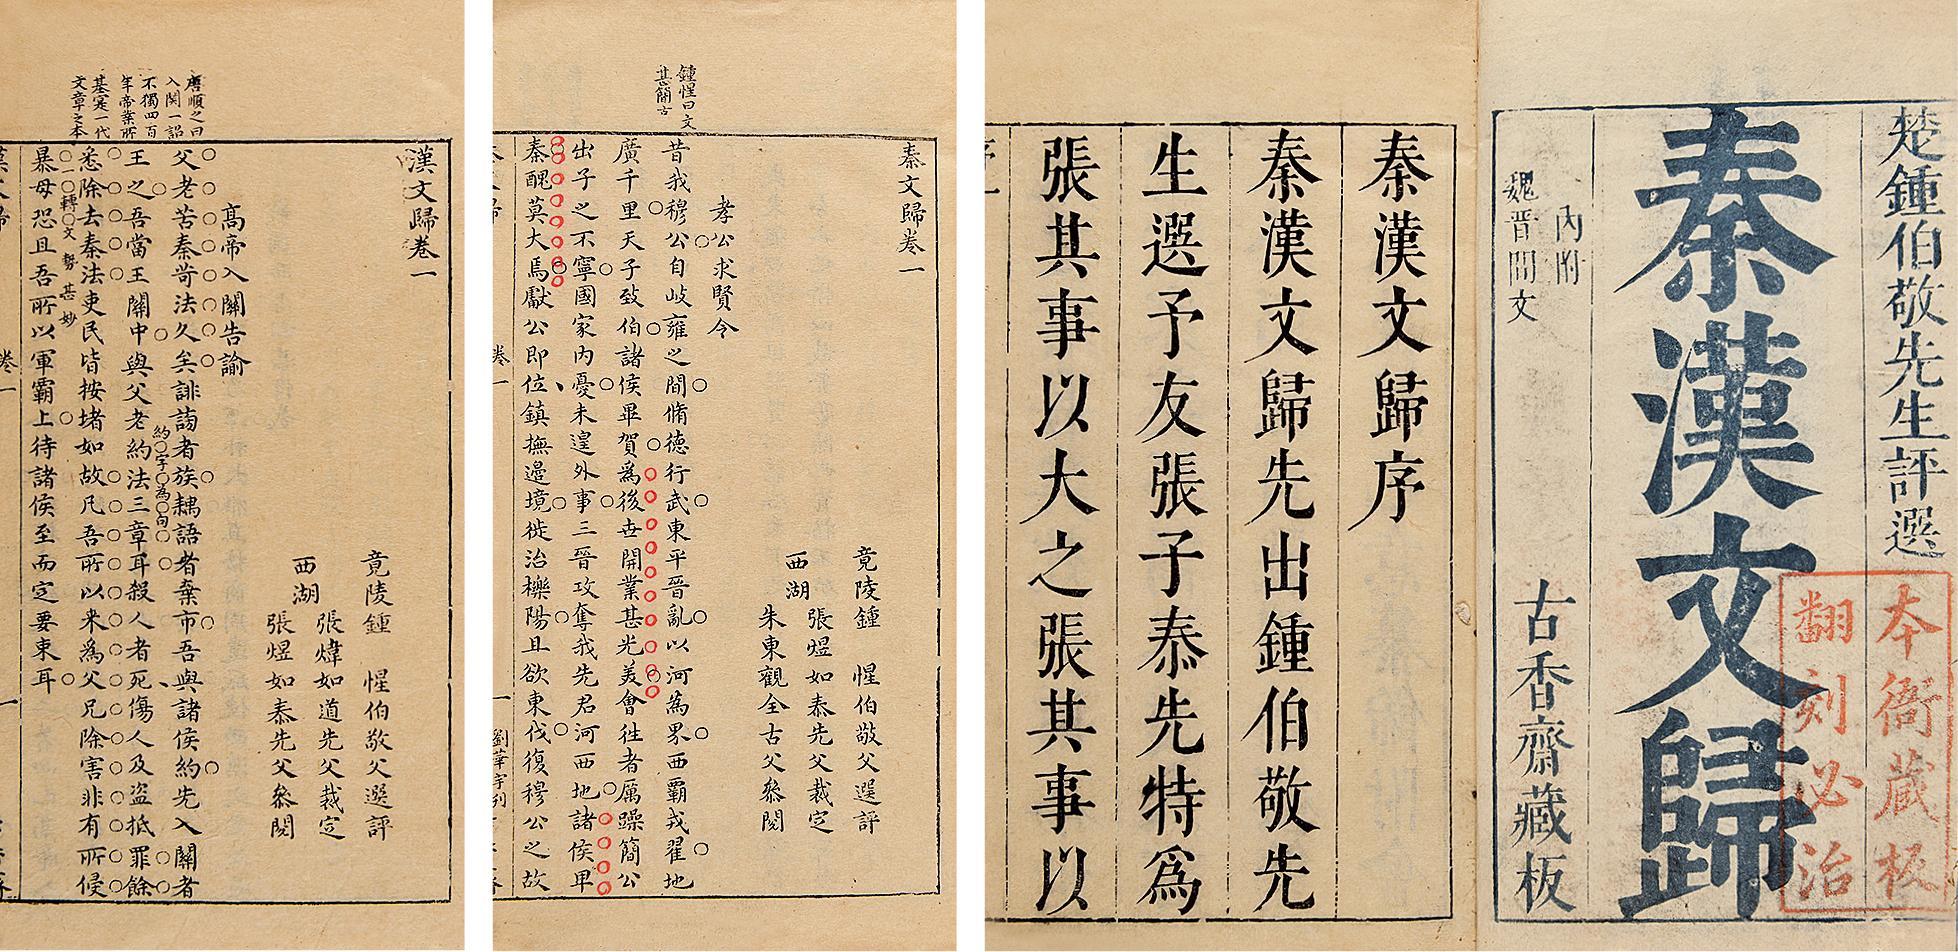 楚鍾伯敬先生評選
秦漢文歸
內附
魏晉間文
古香齋藏板
本衙藏板
翻刻必治
秦漢文歸序
秦漢文歸先出鍾伯敬先
生選予友張子泰先特為
張其事以大之張其事以
序一
秦文歸卷一
竟陵鍾惺伯敬父選評
西湖
張煜如泰先父裁定
朱東觀全古父叅閱
孝公求賢令
昔我穆公自岐雍之間脩德行武東平晉亂以河為界西霸戎翟地
廣千里天子致伯諸侯畢賀為後世開業甚光美會往者厲躁簡公
出子之不寧國家內憂未遑外事三晉攻奪我先君河西地諸侯卑
秦醜莫大焉獻公即位鎮撫邊境徙治櫟陽且欲東伐復穆公之故
鍾惺曰文
甚簡古
卷一
一
劉華宇刊
漢文歸卷一
竟陵鍾惺伯敬父選評
西湖
張煒如道先父裁定
張煜如泰先父叅閱
高帝入關告諭
父老苦秦苛法久矣誹謗者族耦語者棄市吾與諸侯約先入關者
王之吾當王關中與父老約法三章耳殺人者死傷人及盜抵罪餘
約字為句
悉除去秦法吏民皆按堵如故凡吾所以来為父兄除害非有所侵
一轉文勢甚妙
暴毋恐且吾所以軍霸上待諸侯至而定要東耳
唐順之曰
入関一詔
不獨四百
年帝業所
基寔一代
文章之本
卷一
一